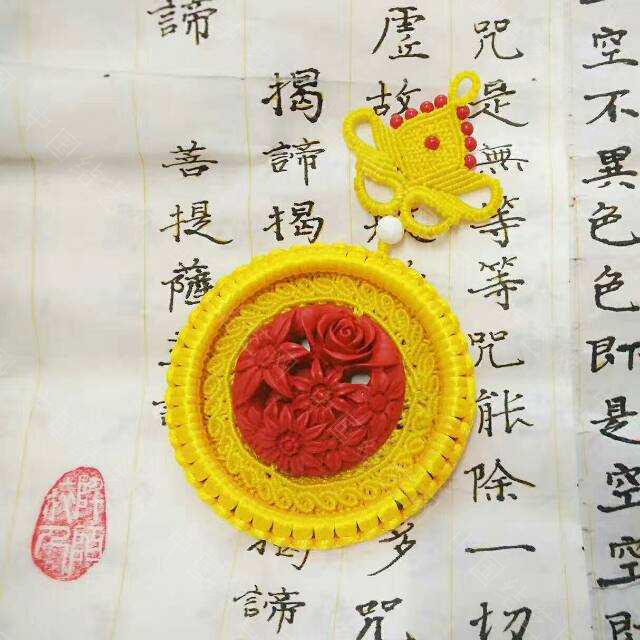 空不異色色即是空空即
咒是無等等咒能除一切
虛故多咒
揭諦揭揭諦
諦菩提薩